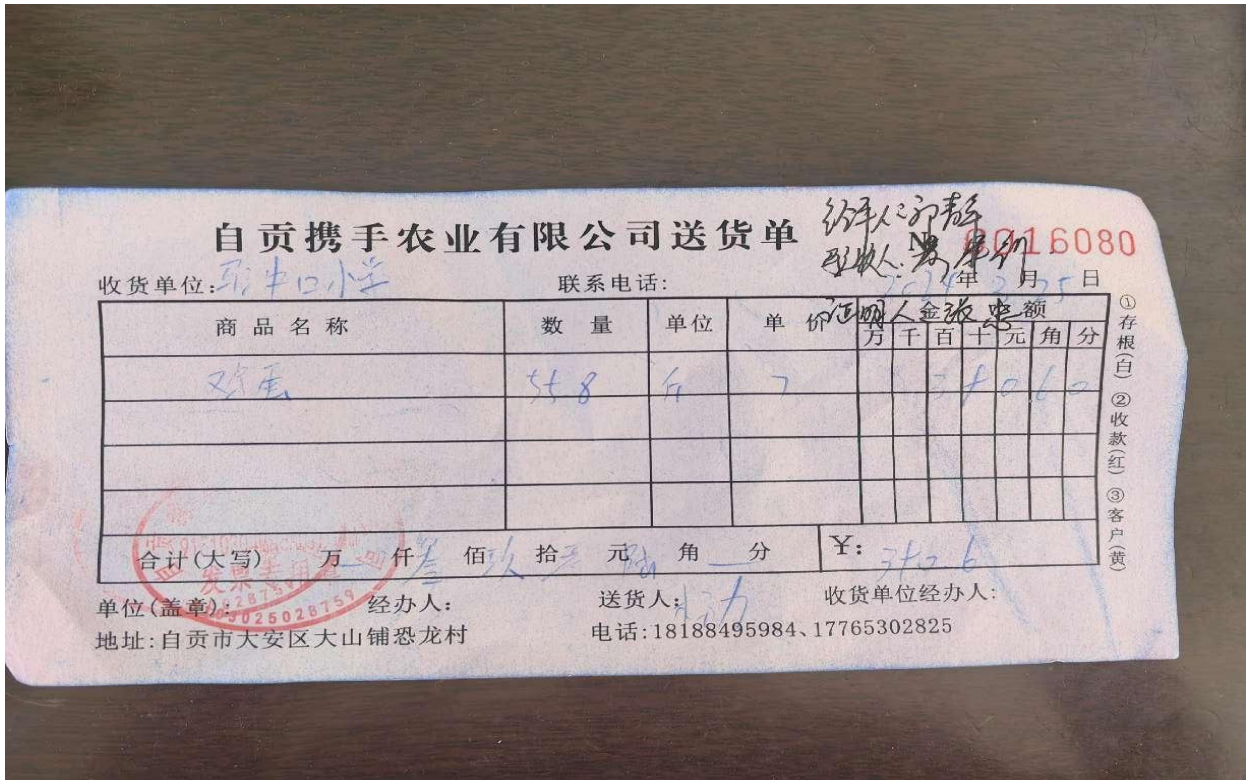 自贡携手农业有限公司送货单
№ 0016080
经手人:
收货单位: 中口小学
联系电话:
2024年 月25日
证明人
商品名称 数量 单位 单价 金额
万 千 百 十 元 角 分
鸡蛋 55.8 斤 7 3 9 0 6 0
合计(大写) 万 仟 叁佰 玖拾 零元 陆角 分 ¥: 390.6
单位(盖章): 经办人: 送货人: 收货单位经办人:
地址:自贡市大安区大山铺恐龙村
电话:18188495984、17765302825
①存根(白) ②收款(红) ③客户(黄)
发票专用章